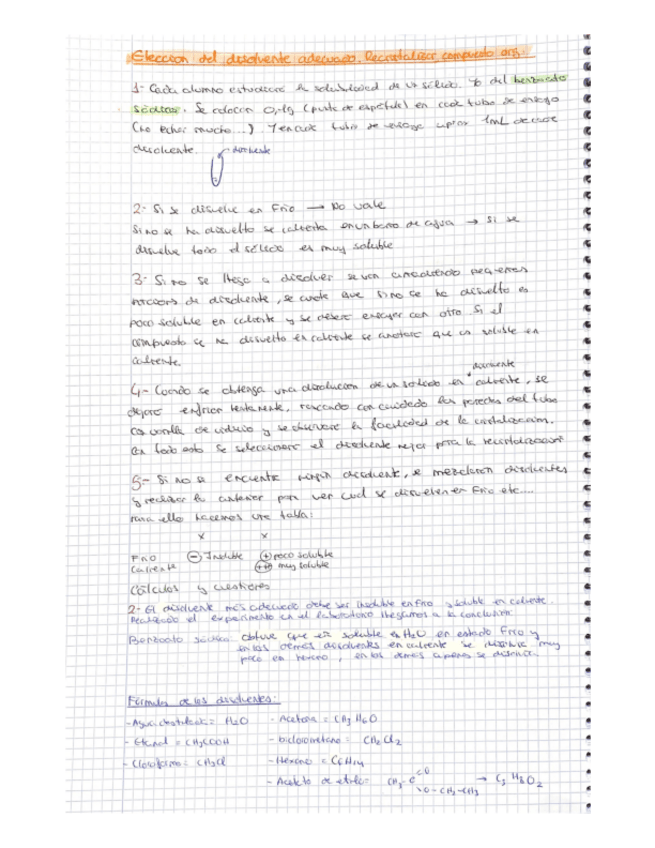 Elección del disolvente adecuado. Recristalizar compuesto org.
1- Cada alumno estudiará la solubilidad de un sólido. Yo del benzoato
sódico. Se colocan 0,1g (punta de espátula) en cada tubo de ensayo
(no echar mucho...) Y en cada tubo de ensayo aprox 1mL de cada
disolvente.
disolvente
2- Si se disuelve en Frio → No vale
Si no se ha disuelto se calienta en un baño de agua → Si se
disuelve todo el sólido es muy soluble
3- Si no se llega a disolver se van añadiendo pequeñas
de disolvente, se anota que si no se ha disuelto es
poco soluble en caliente y se debe ensayar con otro Si el
compuesto se ha disuelto en caliente se anotará que es soluble en
caliente.
disolvente
4- Cuando se obtenga una disolución de un sólido en caliente, se
dejará enfriar lentamente, rascando con cuidado las paredes del tubo
con varilla de vidrio y se observará la facilidad de la cristalización.
Con todo esto se seleccionará el disolvente mejor para la recristalización
5- Si no se encuentra ningún disolvente, se mezclaran disolventes
y realizar lo anterior para ver cual se disuelve en Frio etc....
Para ello hacemos una tabla:
x x
Frio - Insoluble + poco soluble
Caliente ++ muy soluble
Cálculos y cuestiones
2- El disolvente más adecuado debe ser insoluble en frio y soluble en caliente.
Realizado el experimento en el laboratorio llegamos a la conclusión:
Benzoato sódico: obtuve que es soluble en H2O en estado Frio y
en los demás disolventes en caliente se disuelve muy
poco en hexano, en los demás apenas se disuelve.
Fórmula de los disolventes:
-Agua destilada = H2O - Acetona = CH3 H6O
- Etanol = CH3COOH - diclorometano = CH2Cl2
- Cloroformo = CH3Cl - Hexano = C6H14
- Acetato de etilo = CH3-C O O-CH2-CH3 → C3 H8O2